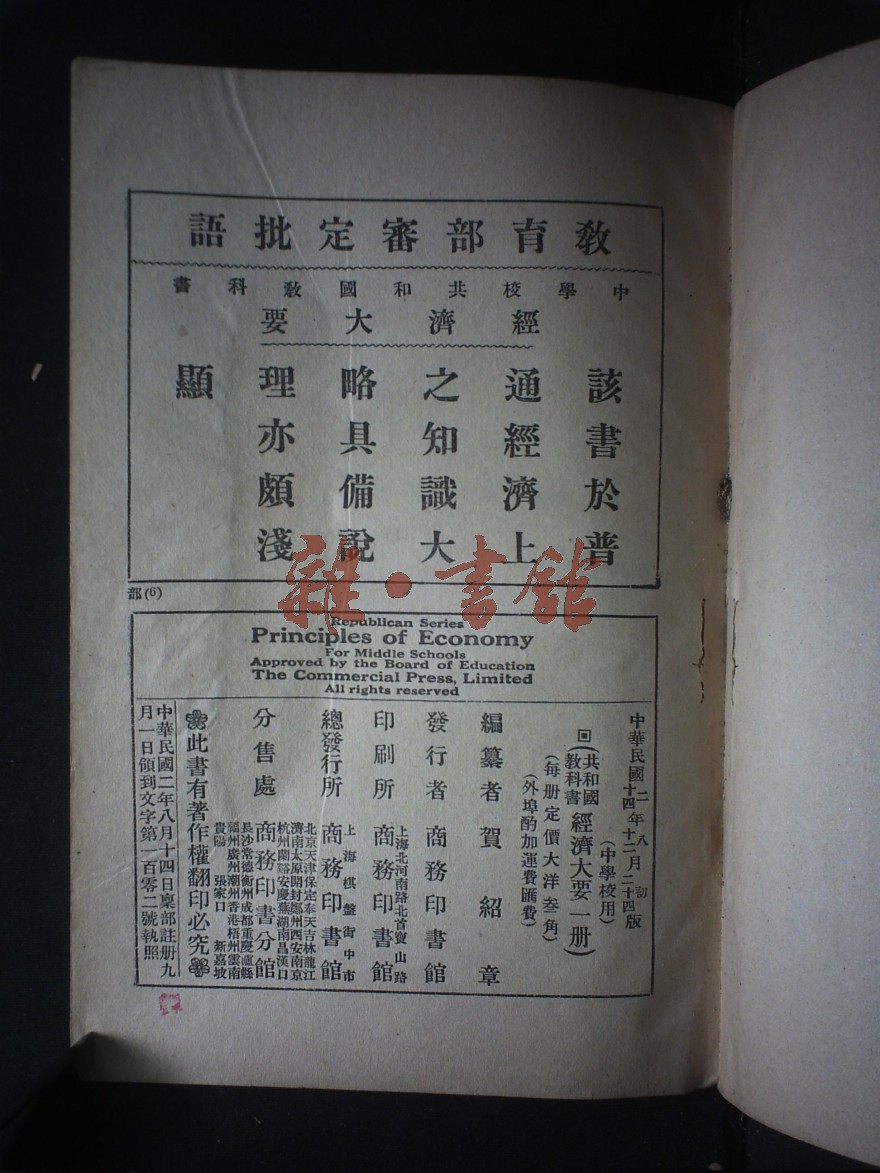 教育部審定批語
中學校共和國教科書
經濟大要
該書於普
通經濟上
之知識大
略具備說
理亦頗淺
顯
部(6)
雜·書館
Republican Series
Principles of Economy
For Middle Schools
Approved by the Board of Education
The Commercial Press, Limited
All rights reserved
中華民國二年八月初版
中華民國十四年十二月二十四版
(中學校用)
(共和國教科書經濟大要一册)
(每册定價大洋叁角)
(外埠酌加運費匯費)
編纂者 賀紹章
發行者 商務印書館
上海北河南路北首寶山路
印刷所 商務印書館
上海棋盤街中市
總發行所 商務印書館
北京天津保定奉天吉林龍江
濟南太原開封鄭州西安南京
杭州蘭谿安慶蕪湖南昌漢口
分售處 商務印書分館
長沙常德衡州成都重慶瀘縣
福州廣州潮州香港梧州雲南
貴陽 張家口 新嘉坡
此書有著作權翻印必究
中華民國二年八月十四日稟部註册九
月一日領到文字第一百零二號執照